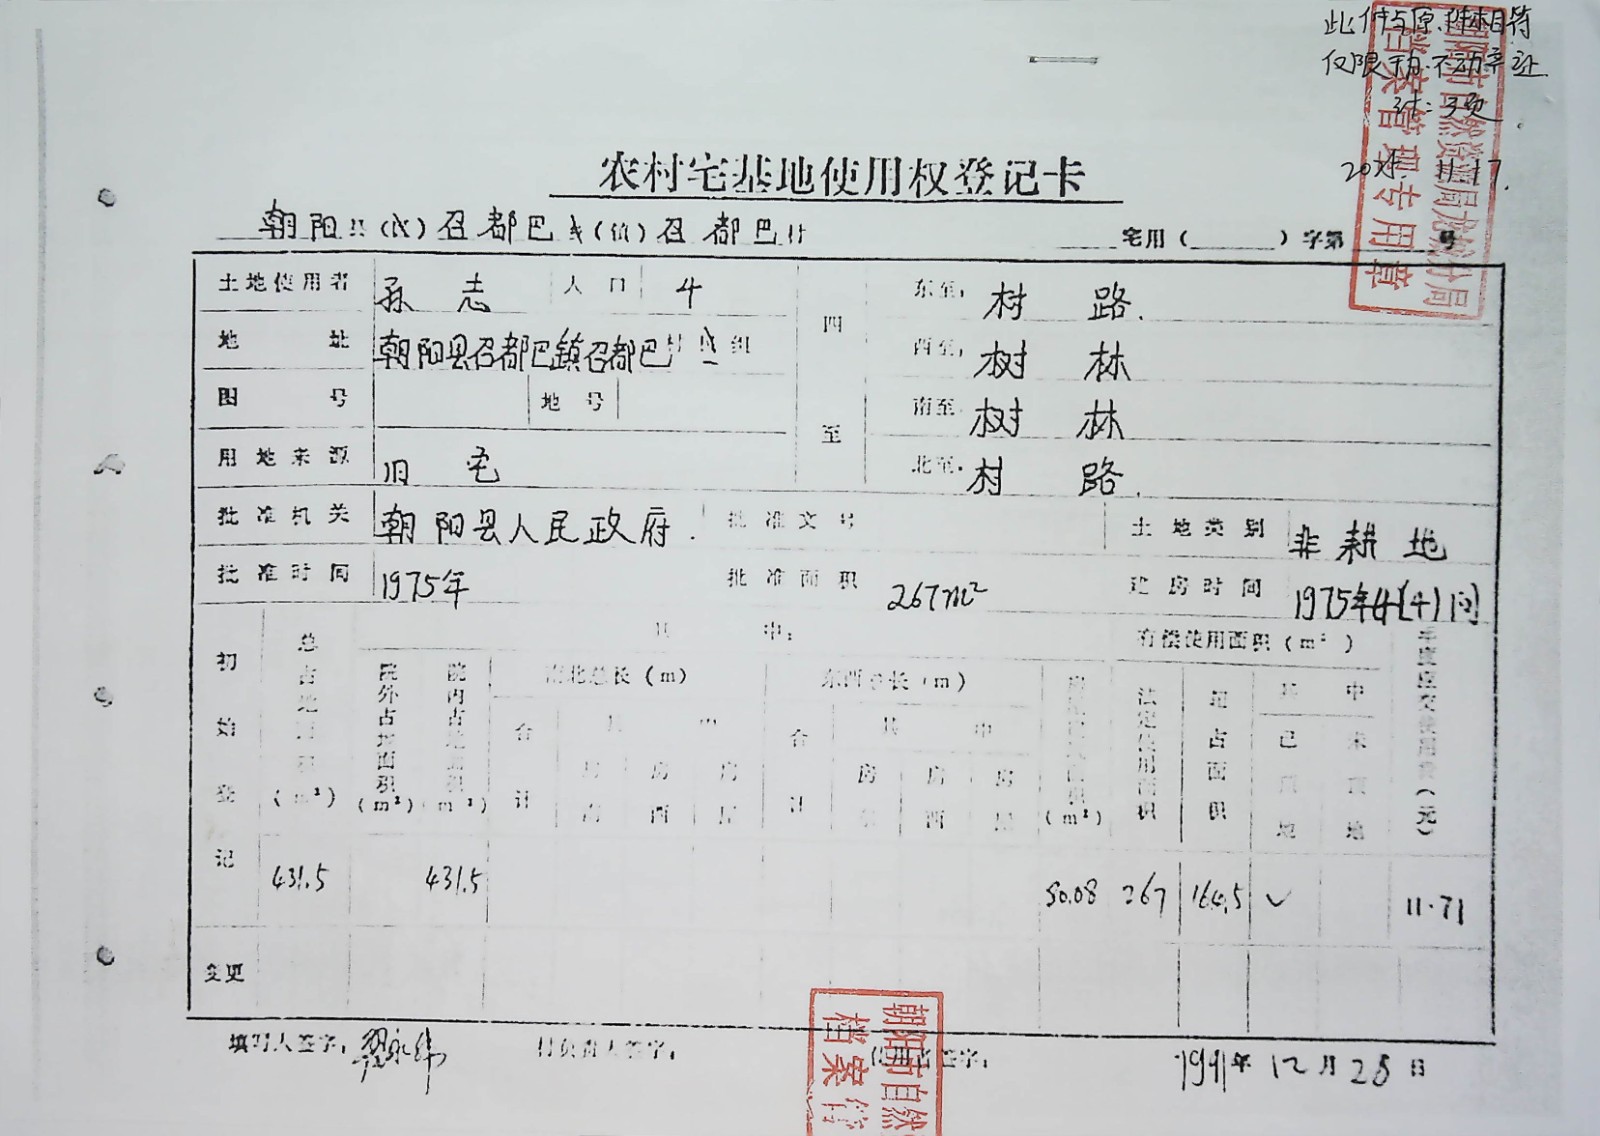 此件与原件相符
仅限于办不动产证
计:3页.
11.17.
朝阳市自然资源局龙城分局
档案管理专用章
农村宅基地使用权登记卡
朝阳县(区)召都巴乡(镇)召都巴村 宅用( )字第 号
土地使用者 孙 志 人口 4 四至 东至: 村 路.
地址 朝阳县召都巴镇召都巴村 组 西至: 树 林
图号 地号 南至: 树 林
用地来源 旧 宅 北至: 村 路.
批准机关 朝阳县人民政府. 批准文号 土地类别 非耕地
批准时间 1975年 批准面积 267m² 建房时间 1975年 (4)间
初始登记 总占地面积(m²) 其中: 有偿使用面积(m²) 年度应交使用费(元)
院外占地面积(m²) 院内占地面积(m²) 南北总长(m) 东西总长(m) (m²) 法定使用面积 超占面积 其中
合计 其中 合计 其中 已 未
房南 房西 房 房 房西 房 地 地
431.5 431.5 80.08 267 164.5 ✓ 11.71
变更
填写人签字: 村负责人签字: 签字: 1991年12月28日
朝阳市自然
档案管